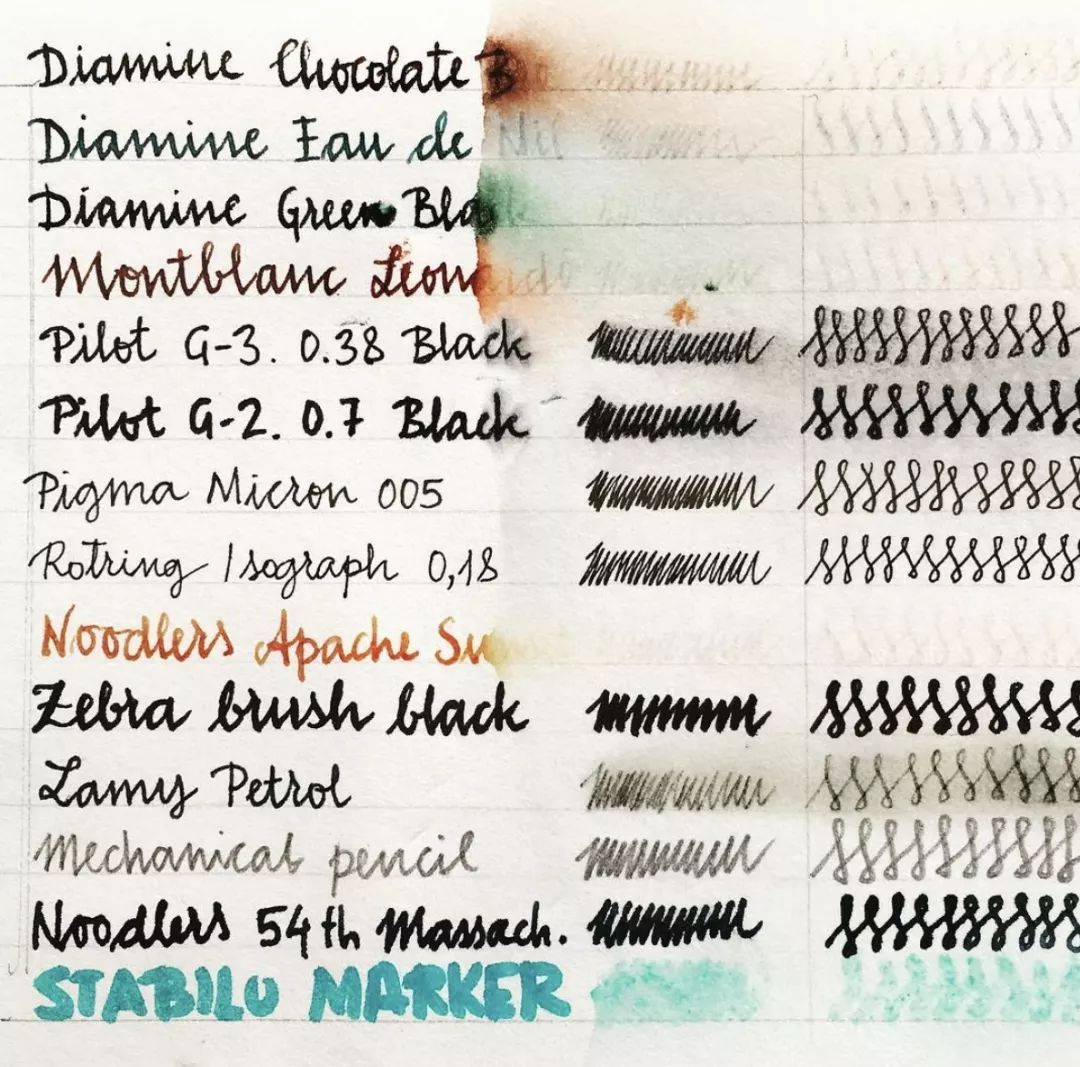 Diamine Chocolate B
Diamine Eau de Nil
Diamine Green Black
Montblanc Leonardo
Pilot G-3. 0.38 Black
Pilot G-2. 0.7 Black
Pigma Micron 005
Rotring Isograph 0,18
Noodlers Apache Sunset
Zebra brush black
Lamy Petrol
Mechanical pencil
Noodlers 54th Massach.
STABILO MARKER